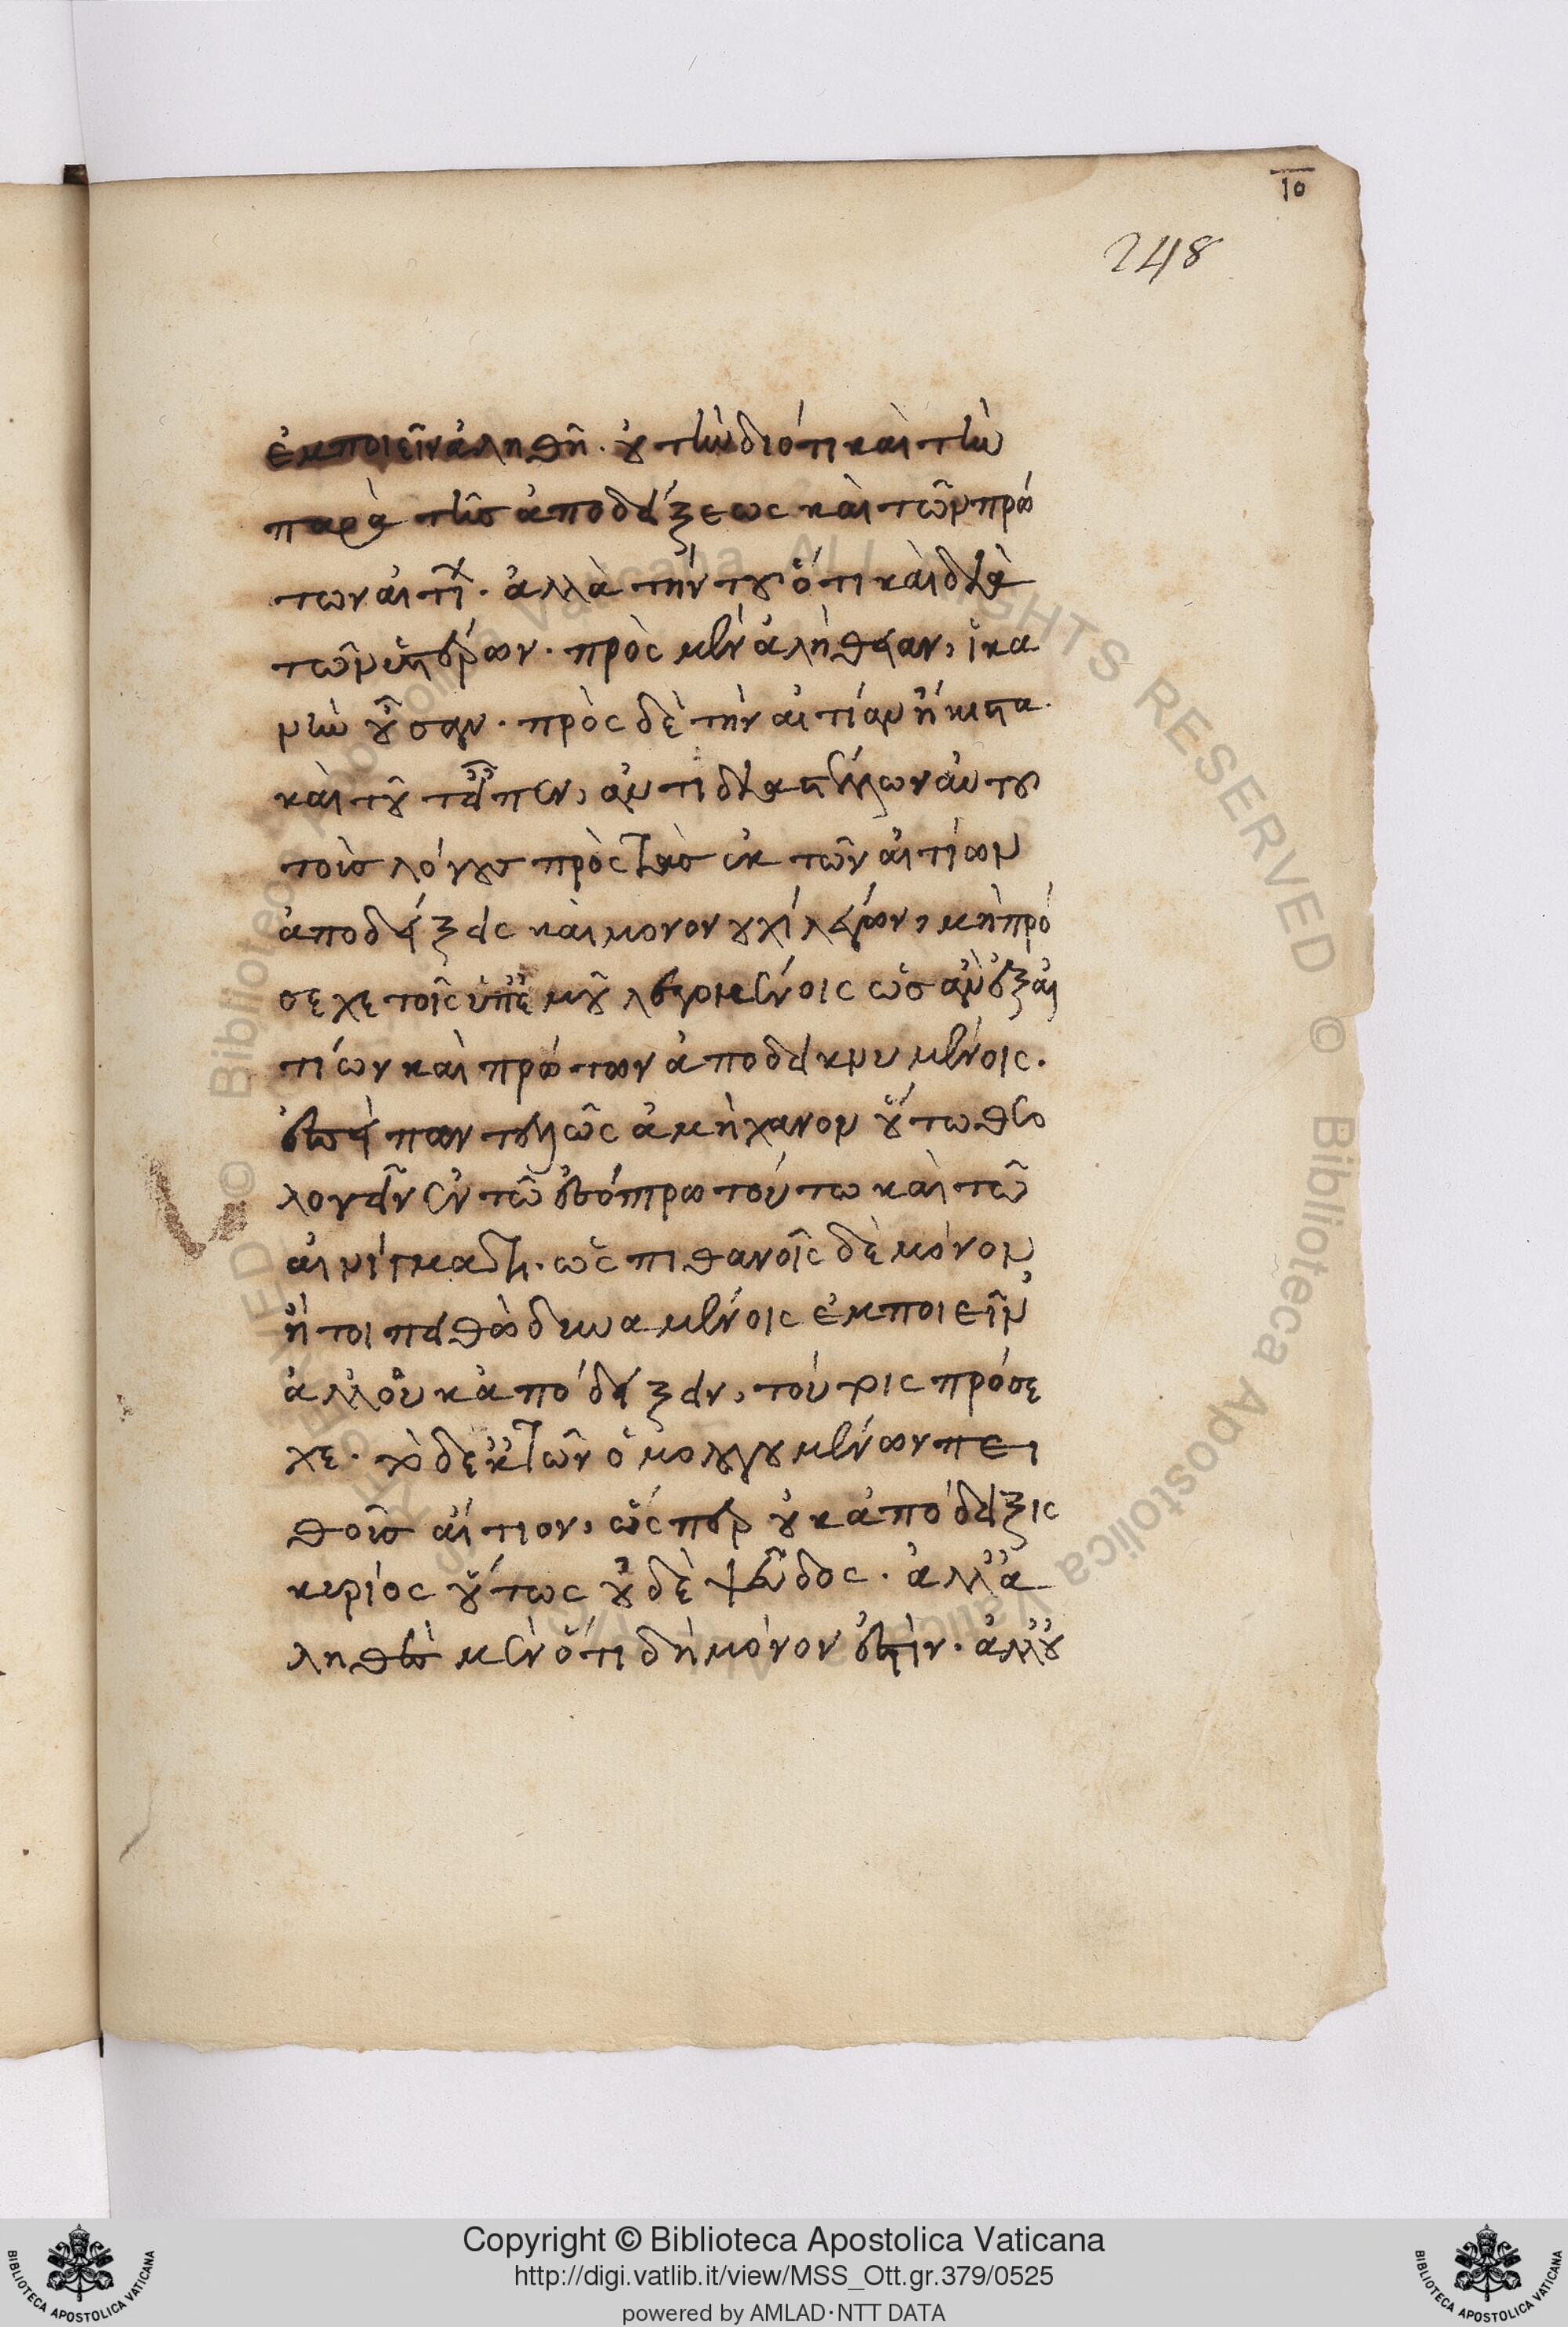 10
248
ἐμποιεῖν ἀληθῆ. οὐ τὴν διότι καὶ τὴν
παρὰ τῆς ἀποδείξεως καὶ τῶν πρώ
των αἰτι. ἀλλὰ τὴν τοῦ ὅτι καὶ διὰ
τῶν ὑστέρων. πρὸς μὲν ἀλήθειαν, ἱκα
νὴν οὖσαν. πρὸς δὲ τὴν αἰτίαν ἥκιστα.
καὶ τοῦ, ἀντιδιαστέλλων αὐτοῦ
τοὺς λόγους πρὸς τὰς ἐκ τῶν αἰτίων
ἀποδείξεις καὶ μονονουχὶ λέγων, μὴ πρό
σεχε τοῖς ὑπ' ἐμοῦ λεγομένοις ὡς ἂν ἐξ αἰ
τίων καὶ πρώτων ἀποδεικνυμένοις.
ἐπεὶ παντελῶς ἀμήχανον οὕτω θεο
λογεῖν ἐν τῷ ἐσόπτρῳ τούτῳ καὶ τῷ
αἰνίγματι. ὡς πιθανοῖς δὲ μόνον
ἤτοι πειθὼ δυναμένοις ἐμποιεῖν
ἀλλ' οὐκ ἀπόδειξιν, τούτοις πρόσε
χε. τὸ δὲ ἐκ τῶν ὁμολογουμένων πει
θοῦς αἴτιον, ὥσπερ οὐκ ἀπόδειξις
κυρίως οὕτως οὐδὲ ψεῦδος. ἀλλ' ἀ
ληθὲς μὲν ὅτι δὴ μόνον ἐστὶν. ἀλλ' οὐ
Copyright © Biblioteca Apostolica Vaticana
http://digi.vatlib.it/view/MSS_Ott.gr.379/0525
powered by AMLAD·NTT DATA
BIBLIOTECA APOSTOLICA VATICANA
BIBLIOTECA APOSTOLICA VATICANA